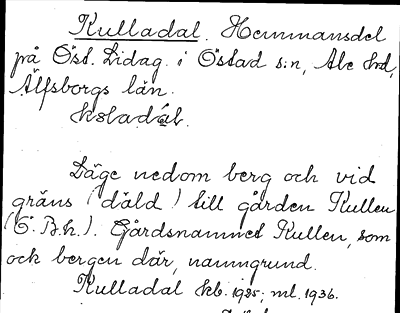 Kulladal. Hemmansdel
på Öst. Lidag. i Östad s:n, Ale hd,
Älfsborgs län.
Läge nedom berg och vid
gräns (dåld) till gården Kullen
(E. B. h.). Gårdsnamnet Kullen, som
och bergen där, namngrund.
Kulladal kb. 1925; ml. 1936.